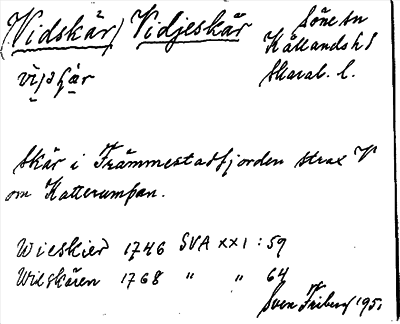 (Vidskär) Vidjeskär Söne sn
Kållands hd
Skarab. l.
Skär i Främmestadfjorden strax V
om Katterumpan.
Wieskier 1746 SVA XXI : 59
Wieskären 1768 " " 64
Sven Friberg 1951